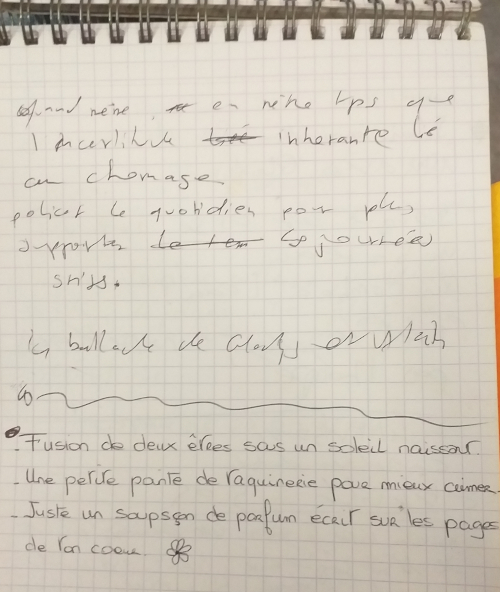 Quand même, en même tps que
l'incertitude inhérante lié
au chomage
policer le quotidien pour plus
supporter les journées
la ballade de
- Fusion de deux êtres sous un soleil naissant.
- Une petite pointe de taquinerie pour mieux aimer.
- Juste un soupsçon de parfum écrit sur les pages
de ton coeur